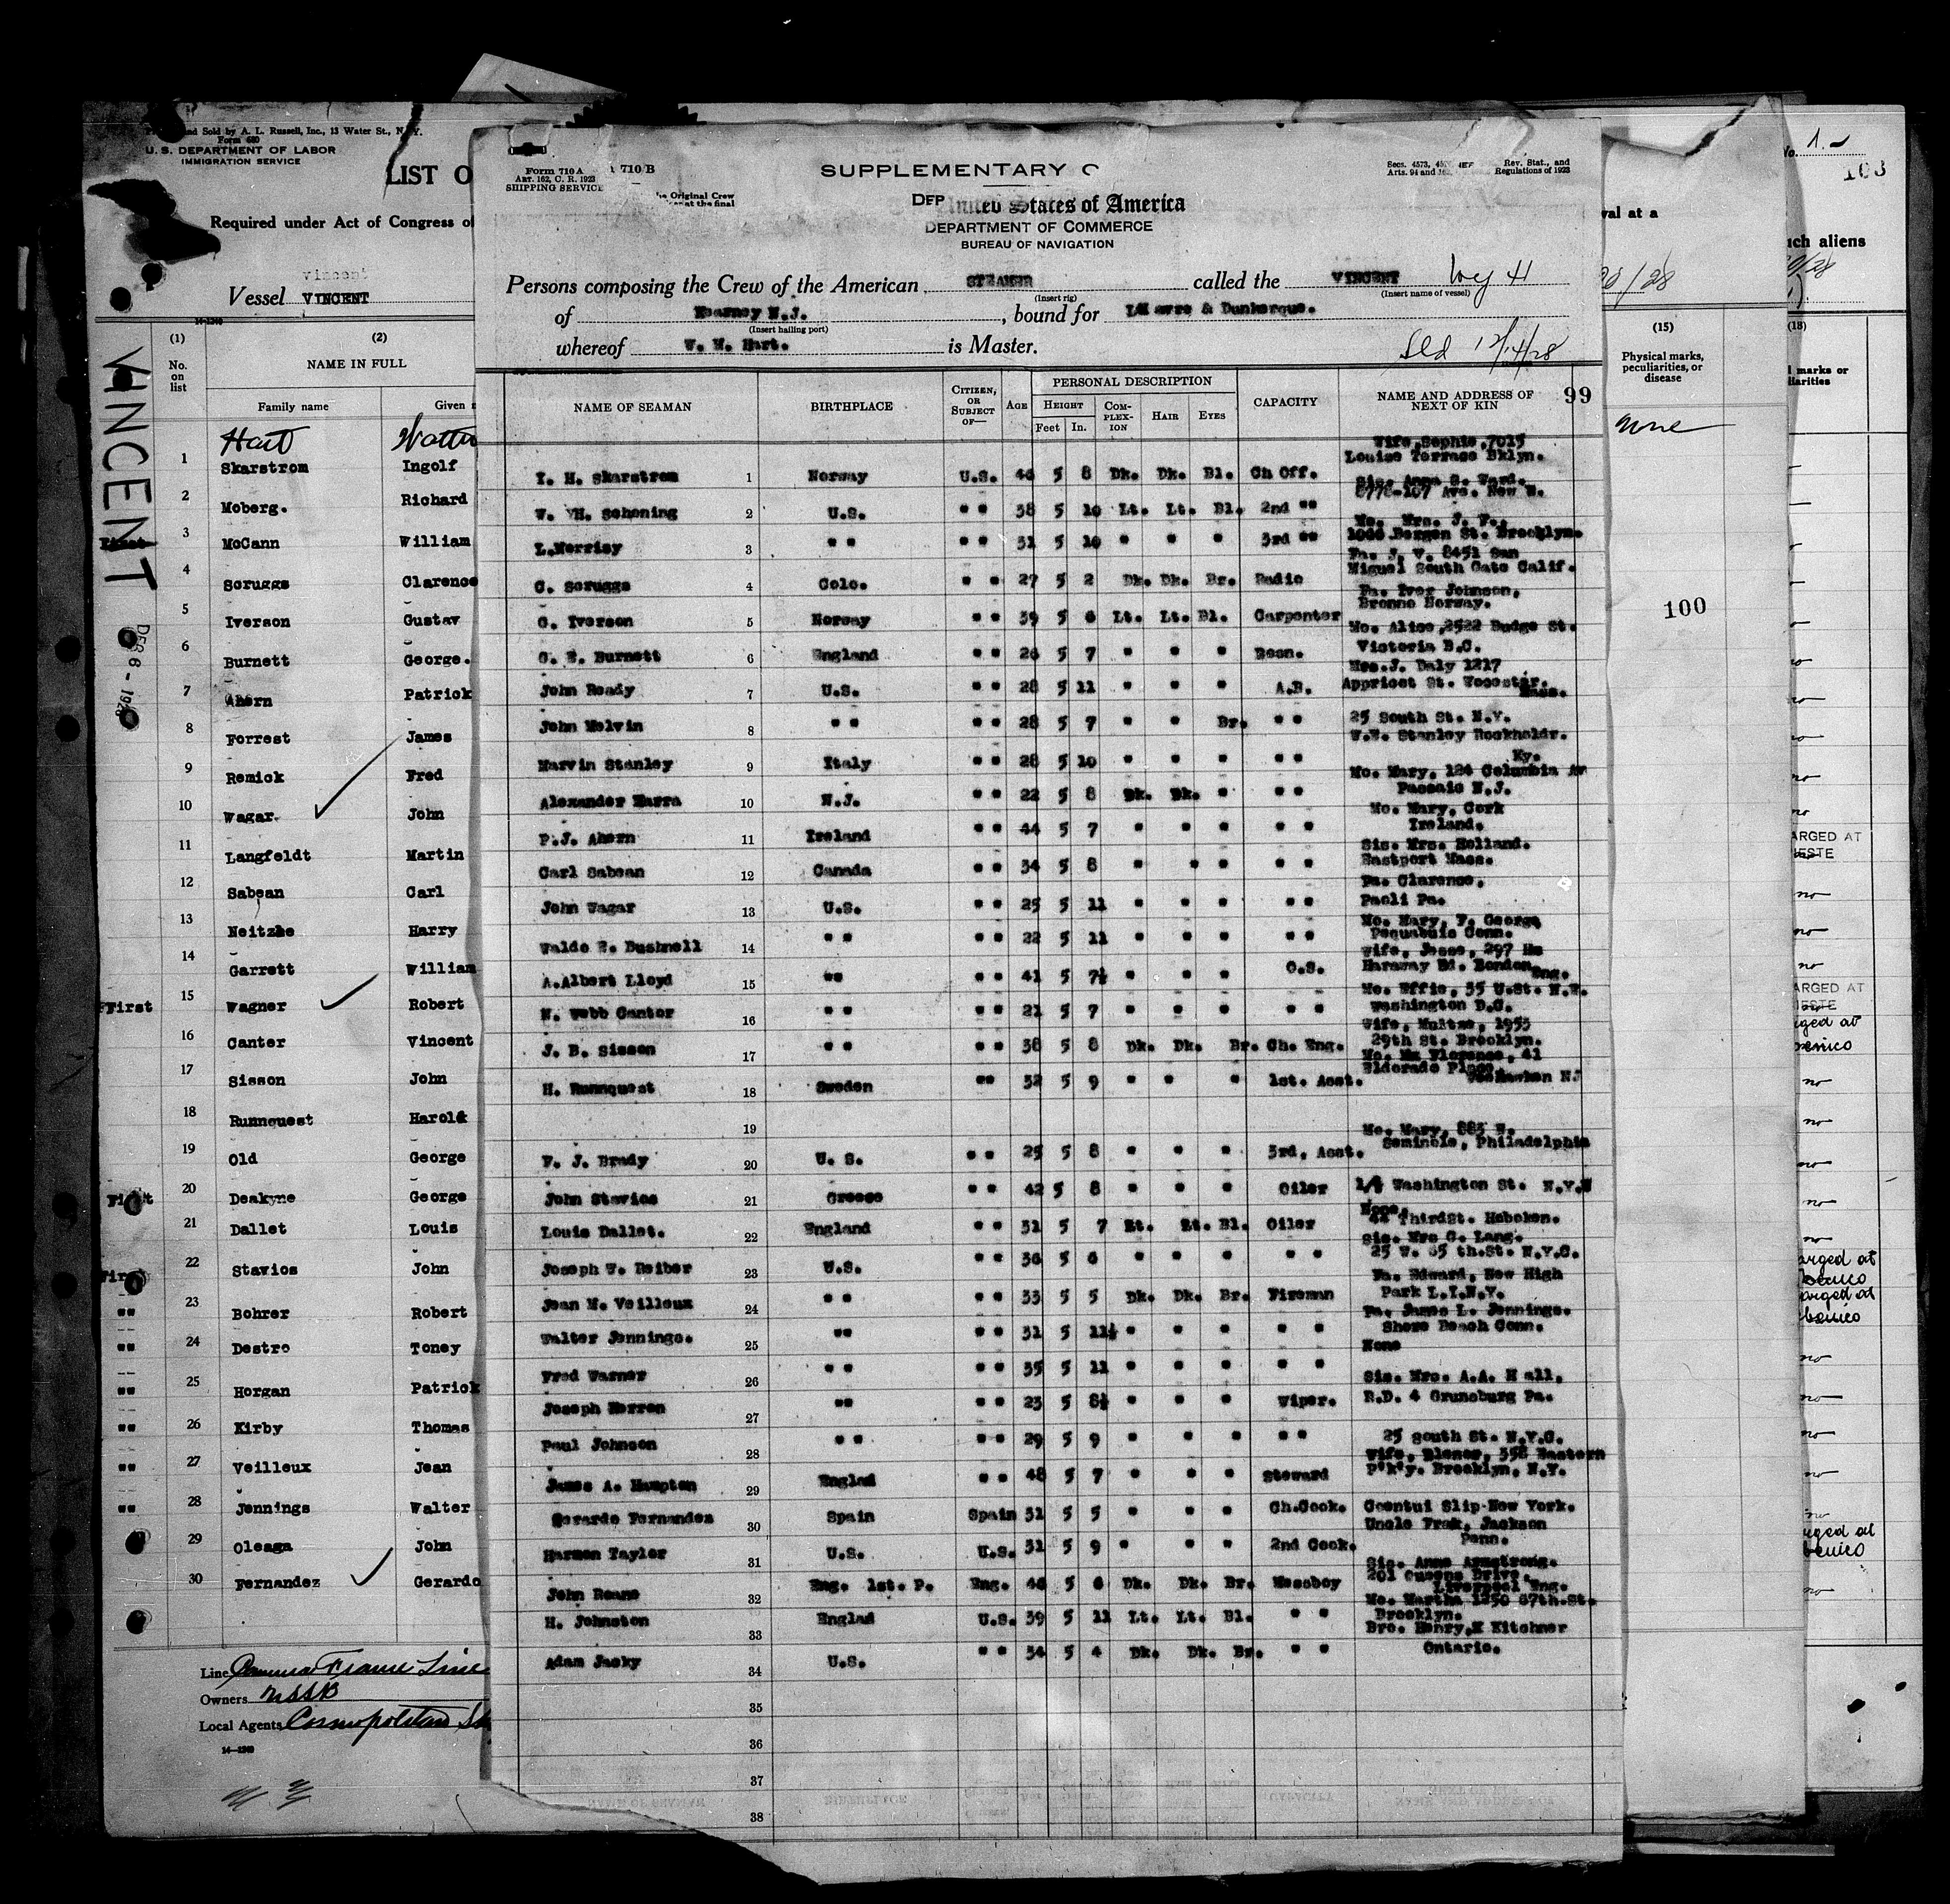 Printed and Sold by A. L. Russell, Inc., 13 Water St., N.Y.
Form 680
U. S. DEPARTMENT OF LABOR
IMMIGRATION SERVICE
LIST O
Required under Act of Congress of
vincent
Vessel VINCENT
14-1240
(1) (2)
No. on list
NAME IN FULL
Family name Given
VINCENT
DEC 6 - 1928
Hart
1 Skarstrom Ingolf
2 Moberg. Richard
First 3 McCann William
4 Scruggs Clarence
5 Iverson Gustav
6 Burnett George.
7 Ahern Patrick
8 Forrest James
9 Remick Fred
10 Wagar John
11 Langfeldt Martin
12 Sabean Carl
13 Neitzke Harry
14 Garrett William
First 15 Wagner Robert
16 Canter Vincent
17 Sisson John
18 Runnquest Harold
19 Old George
First 20 Deakyne George
21 Dallet Louis
First 22 Stavios John
"" 23 Bohrer Robert
"" 24 Destro Toney
"" 25 Horgan Patrick
"" 26 Kirby Thomas
"" 27 Veilleux Jean
"" 28 Jennings Walter
29 Oleaga John
30 Fernandez Gerardo
Line France Line
Owners USSB
Local Agents Cosmopolitan
14—1240
Form 710 A
Art. 162, C. R. 1923
SHIPPING SERVICE
710 B
the Original Crew
at the final
SUPPLEMENTARY C
United States of America
DEPARTMENT OF COMMERCE
BUREAU OF NAVIGATION
Secs. 4573,
Arts. 94 and
Rev. Stat., and
Regulations of 1923
Persons composing the Crew of the American STEAMER called the VINCENT Voy 4
(Insert rig) (Insert name of vessel)
of Kearney N.J. , bound for LeHavre & Dunkerque.
(Insert hailing port)
whereof W. W. Hart. is Master.
Sld 12/14/28
NAME OF SEAMAN BIRTHPLACE CITIZEN, OR SUBJECT OF— AGE PERSONAL DESCRIPTION CAPACITY NAME AND ADDRESS OF NEXT OF KIN 99
HEIGHT COMPLEXION HAIR EYES
Feet In.
Wife, Sophie, 7015
Louise Terrace Bklyn.
I. H. Skarstrom 1 Norway U.S. 46 5 8 Dk. Dk. Bl. Ch Off.
Sis. Anna S. Ward.
W. H. Schoning 2 U.S. " " 38 5 10 Lt. Lt. Bl. 2nd ""
Mo. Mrs. J. F.,
L.Morrisy 3 " " " " 31 5 10 " " " 3rd "" 1066 Bergen St. Brooklyn.
Fa. J. V. 8451 San
C. Scruggs 4 Colo. " " 27 5 2 Dk. Dk. Br. Radio Miguel South Gate Calif.
Fa. Iver Johnson,
G. Iverson 5 Norway " " 39 5 6 Lt. Lt. Bl. Carpenter Bronno Norway.
Mo. Alice, 2522 Dudge St.
G. E. Burnett 6 England " " 26 5 7 " " " Bosn. Victoria B.C.
Mrs.J. Daly 1217
John Ready 7 U.S. " " 28 5 11 " " " A.B. Appricot St. Wocester. Mass.
John Melvin 8 " " " " 28 5 7 " " Br. " " 25 South St. N.Y.
W.W. Stanley Rockholdr. Ky.
Marvin Stanley 9 Italy " " 28 5 10 " " " " "
Mo. Mary, 124 Columbia Av
Alexander Marra 10 N.J. " " 22 5 8 Dk. Dk. " " " Passaic N.J.
Mo. Mary, Cork
P.J. Ahern 11 Ireland " " 44 5 7 " " " " " Ireland.
Sis. Mrs. Holland.
Carl Sabean 12 Canada " " 34 5 8 " " " " " Eastport Mass.
Fa. Clarence,
John Wagar 13 U.S. " " 25 5 11 " " " " " Paoli Pa.
Mo. Mary, F. George
Waldo E. Bushnell 14 " " " " 22 5 11 " " " " " Pequabuic Conn.
Wife, Jesse, 297
A.Albert Lloyd 15 "" " " 41 5 7½ " " " O.S. Eng.
Mo. Effie, 35 U.St. N.W.
N. Webb Cantor 16 " " " " 21 5 7 " " " " " Washington D.C.
J. B. Sisson 17 " " " " 38 5 8 Dk. Dk. Br. Ch. Eng. 29th St. Brooklyn.
Florence, 41
H. Runnquest 18 Sweden "" 32 5 9 " " " 1st. Asst. Eldorado Place, Weehawken NJ
19
Mo. Mary, 883 W.
F. J. Brady 20 U. S. " " 25 5 8 " " " 3rd, Asst. Seminole, Philadelphia
John Stavios 21 Greece " " 42 5 8 " " " Oiler Washington St. N.Y.
None.
Louis Dallet. 22 England " " 31 5 7 Lt. Lt. Bl. Oiler 44 ThirdSt. Hoboken.
Sis. Mrs C. Lang.
Joseph W. Reiber 23 U.S. " " 36 5 6 " " " " " 25 W. 65 th.St. N.Y.C.
Fa. Edward, New High
Jean M. Veilleux 24 " " " " 33 5 5 Dk. Dk. Br. Fireman Park L.I.N.Y.
Fa. James L. Jennings.
Walter Jennings. 25 "" " " 31 5 11½ " " " " " Shore Beach Conn.
Fred Warner 26 " " " " 35 5 11 " " " " " None
Sis. Mrs. A.A. H all,
Joseph Herron 27 "" " " 23 5 8½ " " " Wiper. R.D. 4 Grunsburg Pa.
Paul Johnson 28 " " " " 29 5 9 " " " " " 25 South St. N.Y.C.
Wife, Elenor, 358 Eastern
James A. Hampton 29 Englad " " 48 5 7 " " " Steward P'k'y. Brooklyn, N.Y.
Gerardo Fernandez 30 Spain Spain 31 5 5 " " " Ch.Cook. Coentui Slip New York.
Uncle Frak, Jackson
Harmon Taylor 31 U.S. U.S. 31 5 9 " " " 2nd Cook. Penn.
Sis. Anne Armstrong.
201 Queens Drive.
John Roans 32 Eng. 1st. P. Eng. 46 5 6 Dk. Dk. Br. Messboy Liverpool Eng.
Mo. Martha 1250 67th.St.
H. Johnston 33 Englad U.S. 39 5 11 Lt. Lt. Bl. " " Brooklyn.
Bro. Henry,K Kitchner
Adam Jacky 34 U.S. " " 34 5 4 Dk. Dk. Br. " " Ontario.
35
36
37
38
val at a
20/28
(15)
Physical marks, peculiarities, or disease
None
100
No. 1.
103
uch aliens
(18)
marks or
liarities
no
no
no
no
ARGED AT
ESTE
no
no
no
ARGED AT
ESTE
rged at
benico
no
no
no
no
no
arged at
benico
arged at
benico
no
no
no
no
no
rged at
benico
no